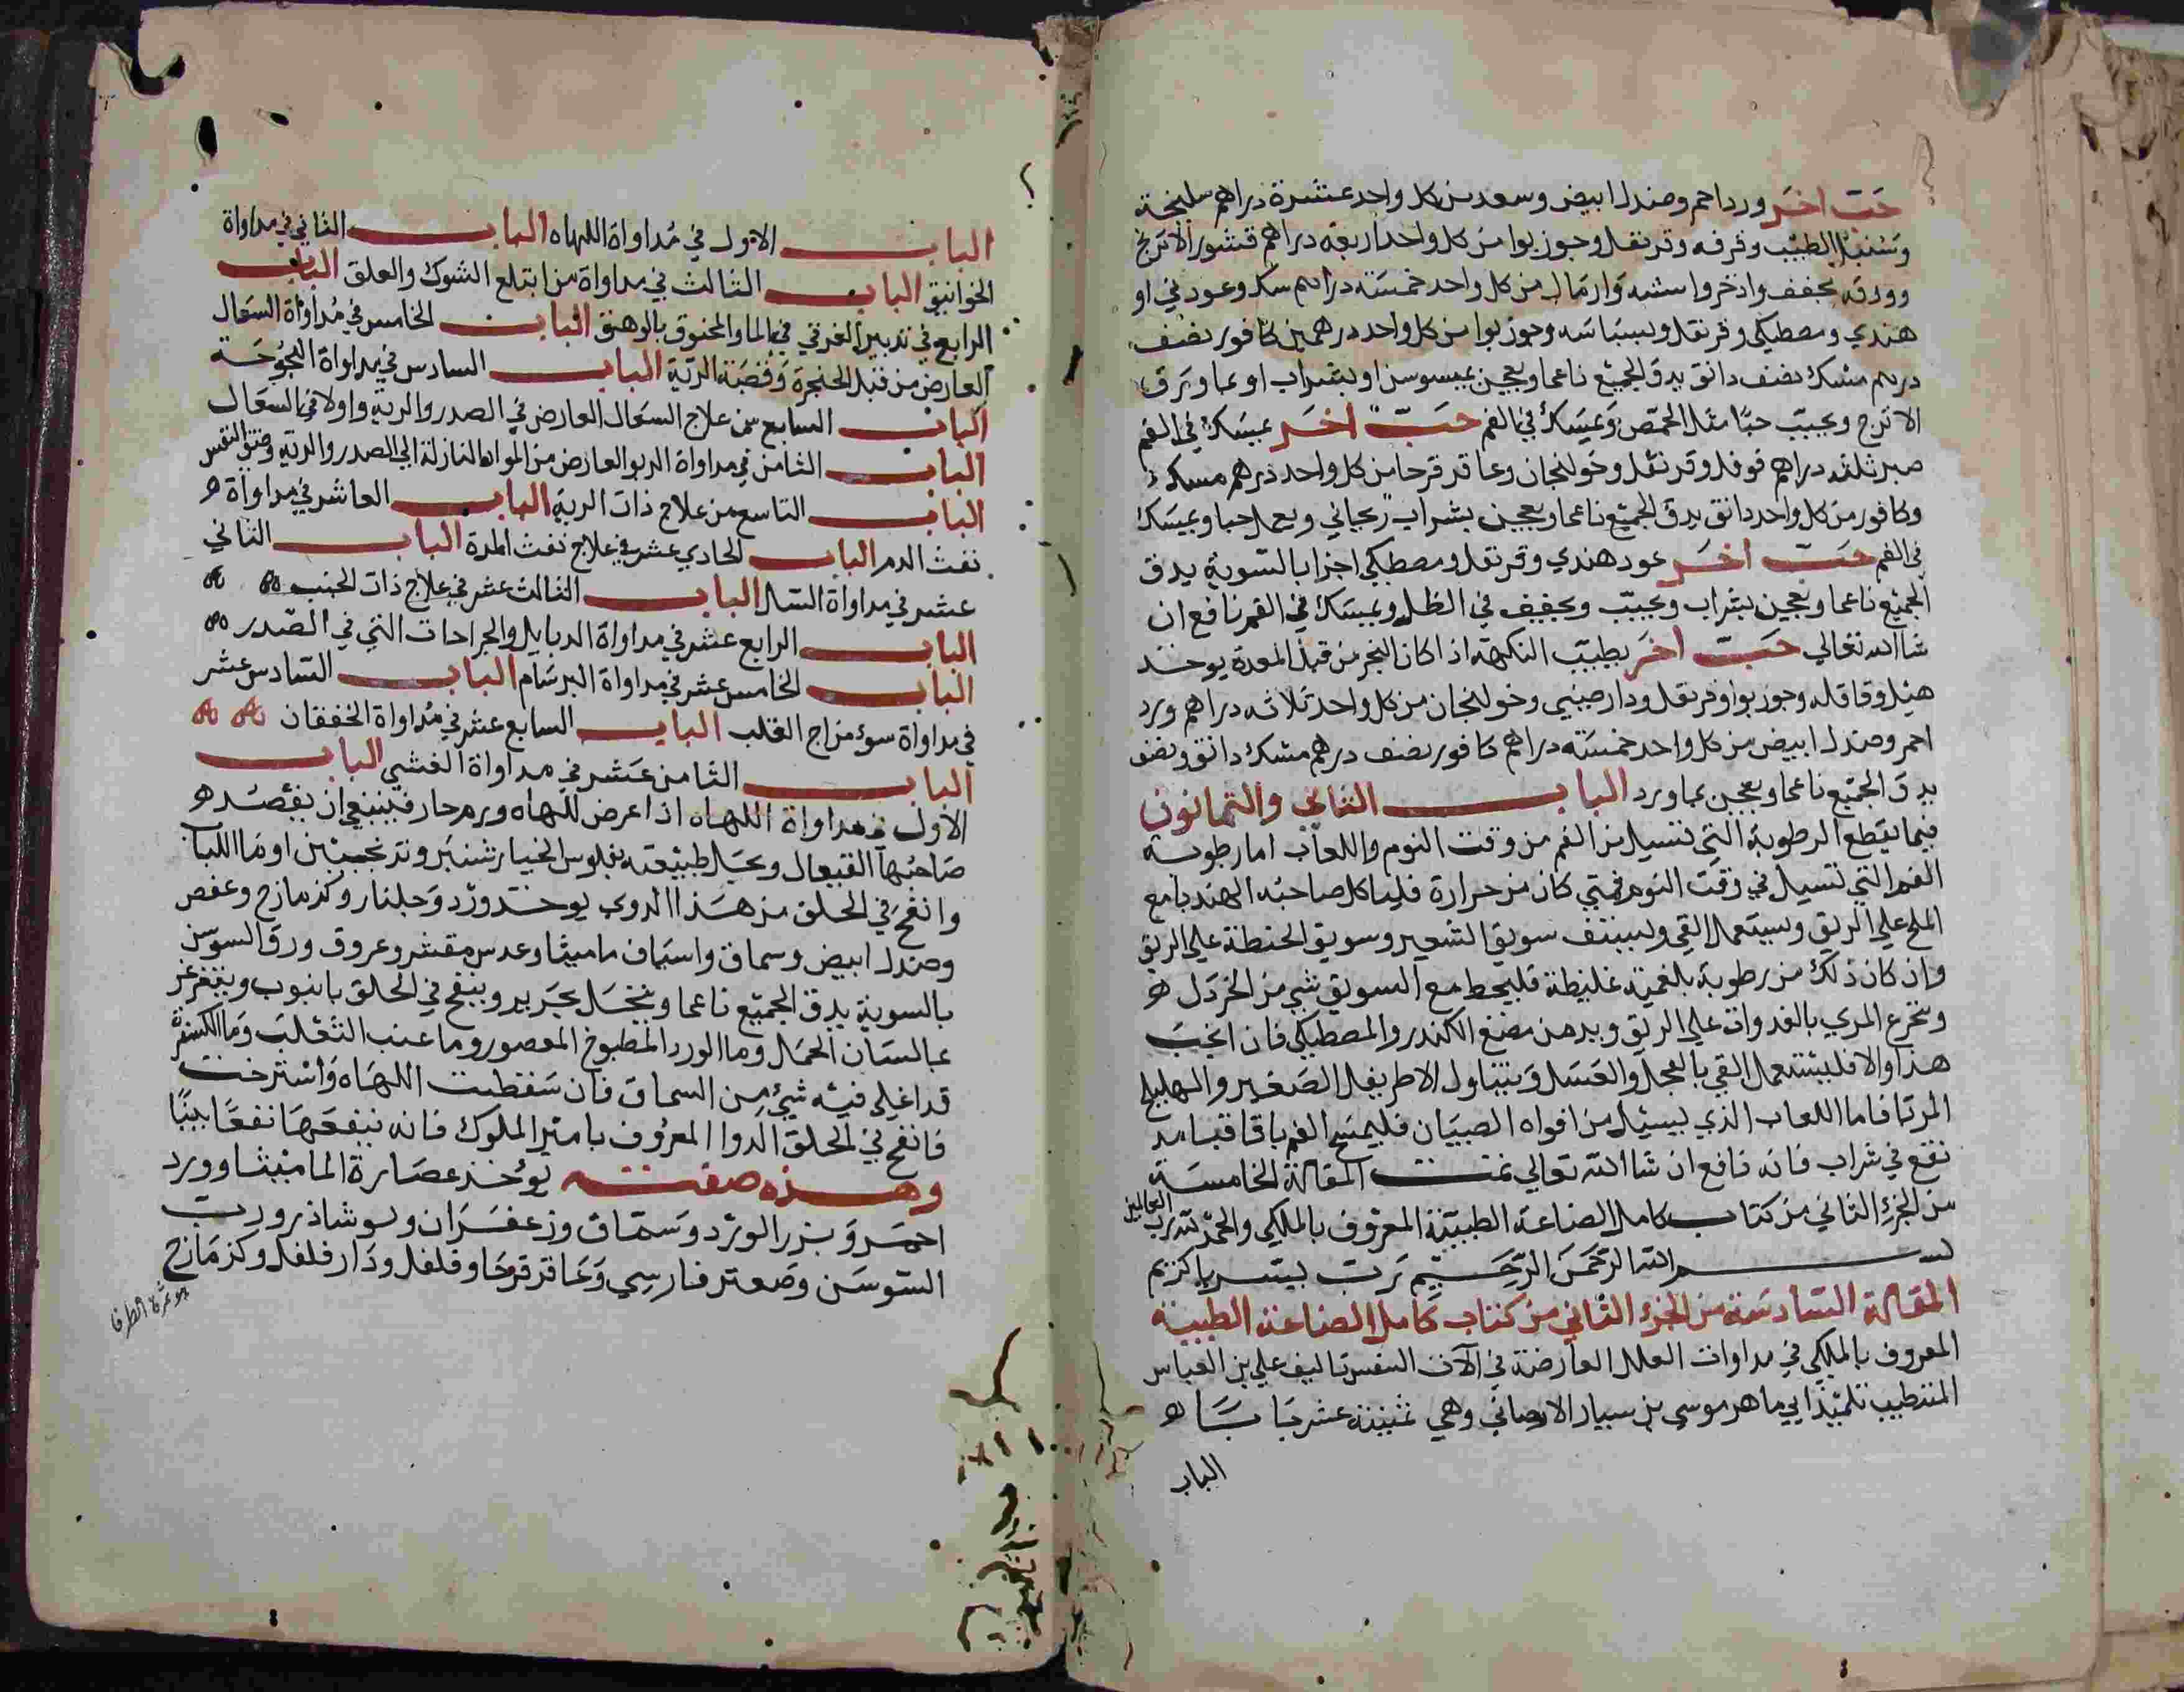 حب اخر ورد احمر وصندل ابيض وسعد من كل واحد عشرة دراهم سليخة
وسنبل الطيب وقرفه وقرنفل وجوزبوا من كل واحد اربعه دراهم قشور الاترج
وورقه مجفف واذخر واشنه وارمال من كل واحد خمسة دراهم سك وعود ني او
هندي ومصطكي وقرنفل وبسباسه وجوزبوا من كل واحد درهمين كافور نصف
درهم مسك نصف دانق يدق الجميع ناعما ويعجن بميسوسن او بشراب او بما ورق
الاترج ويحبب حبا مثل الحمص ويمسك في الفم حب اخر يمسك في الفم
صبر ثلثه دراهم فوفل وقرنفل وخولنجان وعاقر قرحا من كل واحد درهم مسك
وكافور من كل واحد دانق يدق الجميع ناعما ويعجن بشراب ريحاني ويعمل حبا ويمسك
في الفم حب اخر عود هندي وقرنفل ومصطكي اجزا بالسوية يدق
الجميع ناعما ويعجن بشراب ويحبب ويجفف في الظل ويمسك في الفم نافع ان
شاالله تعالي حب اخر يطيب النكهة اذا كان البخر من قبل المعدة يوخذ
هيل وقاقله وجوزبوا وقرنفل ودارصيني وخولنجان من كل واحد ثلاثه دراهم ورد
احمر وصندل ابيض من كل واحد خمسته دراهم كافور نصف درهم مسك دانق ونصف
يدق الجميع ناعما ويعجن بماورد الباب الثاني والثمانون
فيما يقطع الرطوبة التي تسيل من الفم من وقت النوم واللعاب اما رطوبة
الفم التي تسيل في وقت النوم فمتي كان من حرارة فلياكل صاحبه الهندبا مع
الملح علي الريق وليستعمل القي وليستف سويق الشعير وسويق الحنطة علي الريق
وان كان ذلك من رطوبة بلغمية غليظة فليخلط مع السويق شي من الخردل
وتجرع المري بالغدوات علي الريق ويدمن مضغ الكندر والمصطكي فان انجب
هذا والا فليستعمل القي بالفجل والعسل ويتناول الاطريفل الصغير والهليلج
المربا فاما اللعاب الذي يسيل من افواه الصبيان فليمسح الفم باقاقيا قد
نقع في شراب فانه نافع ان شاالله تعالي تمت المقالة الخامسة
من الجزء الثاني من كتاب كامل الصناعة الطبية المعروف بالملكي والحمد لله رب العالمين
بسم الله الرحمن الرحيم رب يسر يا كريم
المقالة السادسة من الجزء الثاني من كتاب كامل الصناعة الطبية
المعروف بالملكي في مداوات العلل العارضة في الآت النفس تاليف علي بن العباس
المتطبب تلميذ ابي ماهر موسي بن سيار الارجاني وهي ثمنية عشر بابا
الباب
الباب الاول في مداواة اللهاه الباب الثاني في مداواة
الخوانيق الباب الثالث في مداواة من ابتلع الشوك والعلق الباب
الرابع في تدبير الغرقي في الما والمخنوق بالوهق الباب الخامس في مداواة السعال
العارض من قبل الحنجرة وقصبة الرية الباب السادس في مداواة البحوحة
الباب السابع من علاج السعال العارض في الصدر والرية واولا في السعال
الباب الثامن في مداواة الربو العارض من المواد النازلة الي الصدر والرية وضيق النفس
الباب التاسع من علاج ذات الرية الباب العاشر في مداواة
نفث الدم الباب الحادي عشر في علاج نفث المدة الباب الثاني
عشر في مداواة السل الباب الثالث عشر في علاج ذات الجنب
الباب الرابع عشر في مداواة الدبايل والجراحات التي في الصدر
الباب الخامس عشر في مداواة البرسام الباب السادس عشر
في مداواة سوء مزاج القلب الباب السابع عشر في مداواة الخفقان
الباب الثامن عشر في مداواة الغشي الباب
الاول في مداواة اللهاه اذا عرض للهاه ورم حار فينبغي ان يفصد
صاحبها القيفال ويحل طبيعته بفلوس الخيارشنبر وترنجبين او ما اللبلاب
وانفخ في الحلق من هذا الدوي يوخذ ورد وجلنار وكزمازج وعفص
وصندل ابيض وسماق واشياف ماميثا وعدس مقشر وعروق ورق السوسن
بالسوية يدق الجميع ناعما وينخل بحرير وينفخ في الحلق بانبوب ويتغرغر
بما لسان الحمل وما الورد المطبوخ المعصور وما عنب الثعلب وما الكسفرة
قد اغلي فيه شيء من السماق فان سقطت اللهاه واسترخت
فانفخ في الحلق الدوا المعروف بامير الملوك فانه ينفعها نفعا بينا
وهذه صفته يؤخذ عصارة الماميثا وورد
احمر وبزر الورد وسماق وزعفران ونوشاذر ورب
السوسن وصعتر فارسي وعاقر قرحا وفلفل ودار فلفل وكزمازج
هو ثمرة الطرفا